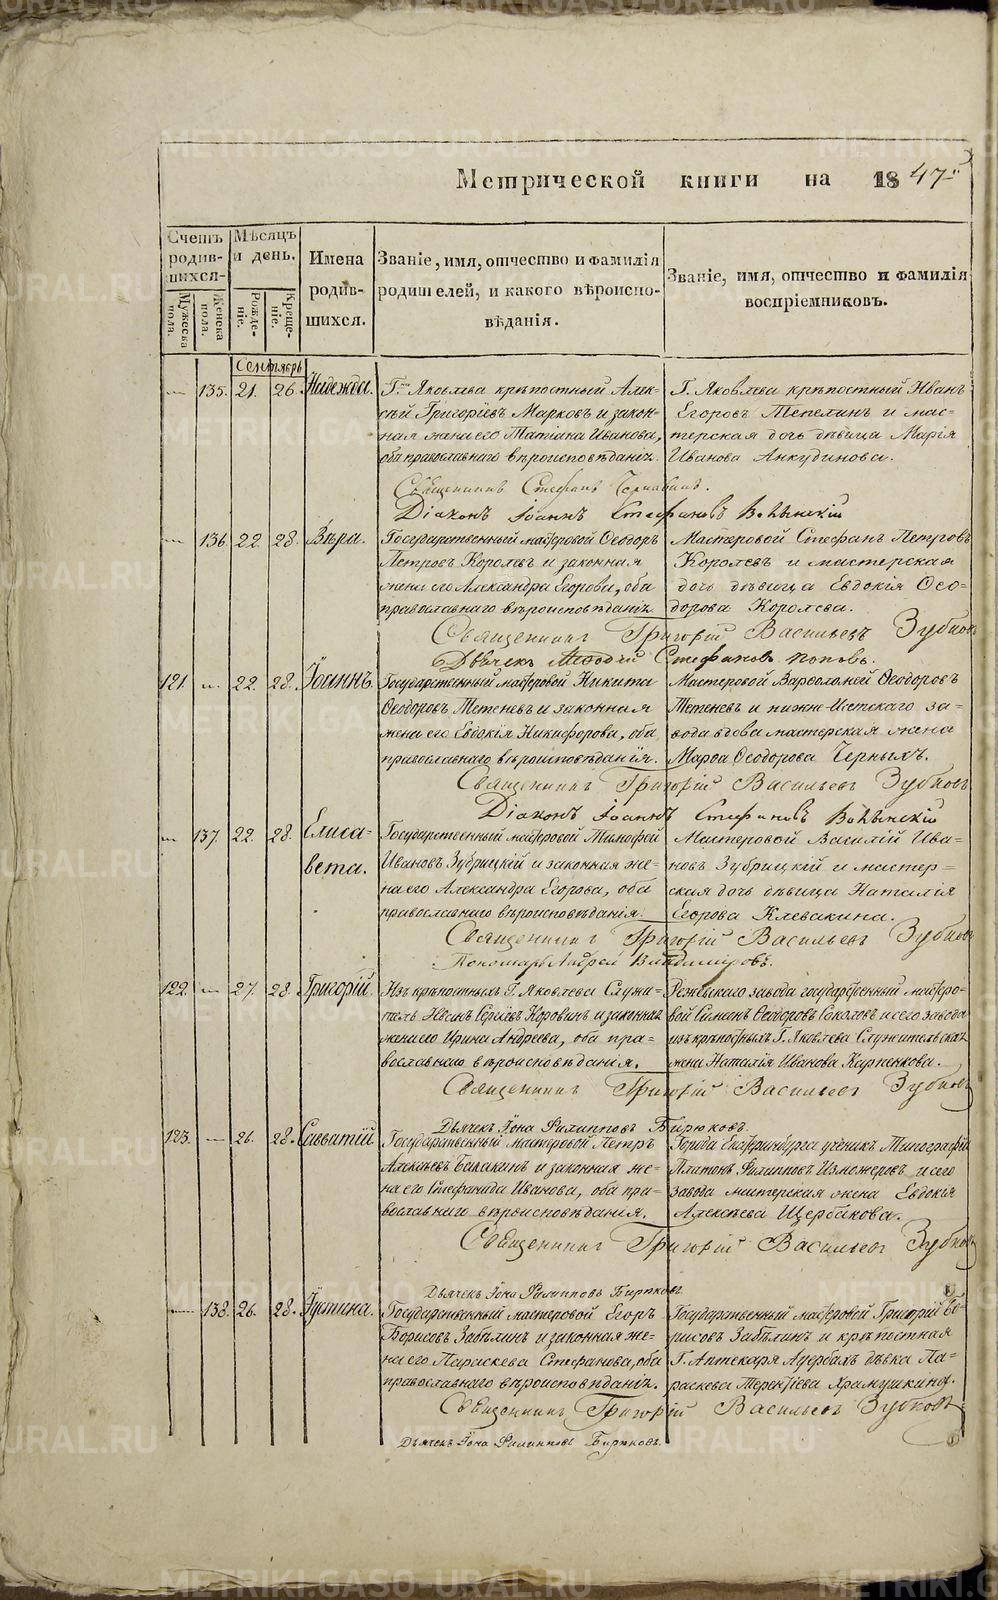 Метрической книги на 1847й
Счетъ родив-шихся.
Мужеска пола.
Женска пола.
Мѣсяцъ и день.
Рожде-ніе.
Креще-ніе.
Имена
родив-
шихся.
Званіе, имя, отчество и фамилія
родителей, и какого вѣроиспо-
вѣданія.
Званіе, имя, отчество и фамилія
воспріемниковъ.
Сентябрь
— 135. 21. 26. Надежда.
Г. Яковлева крѣпостный Алек-
сѣй Григоріевъ Марковъ и закон-
ная жена его Татіана Иванова,
оба православнаго вѣроисповѣданія.
Г. Яковлева крѣпостный Иванъ
Егоровъ Тепелинъ и мас-
терская дочь дѣвица Марія
Иванова Анкудинова.
Священникъ Стефанъ
Діаконъ Іоаннъ Стефановъ Волынскій
— 136. 22. 28. Вѣра.
Государственный мастеровой Ѳеодоръ
Петровъ Королевъ и законная
жена его Александра Егорова, оба
православнаго вѣроисповѣданія.
Мастеровой Стефанъ Петровъ
Королевъ и мастерская
дочь дѣвица Евдокія Ѳео-
дорова Королева.
Священникъ Григорій Васильевъ Зубковъ
Дьячекъ Меѳодій Стефановъ Поповъ.
121. „. 22. 28. Іоаннъ.
Государственный мастеровой Никита
Ѳеодоровъ Тетеневъ и законная
жена его Евдокія Никифорова, оба
православнаго вѣроисповѣданія.
Мастеровой Варѳоломей Ѳеодоровъ
Тетеневъ и нижне-Исетскаго за-
вода вдова мастерская жена
Марѳа Ѳеодорова Черныхъ.
Священникъ Григорій Васильевъ Зубковъ
Діаконъ Іоаннъ Стефановъ Волынскій
— 137. 22. 28. Елиса-
вета.
Государственный мастеровой Тимоѳей
Ивановъ Зубрицкій и законная же-
на его Александра Егорова, оба
православнаго вѣроисповѣданія.
Мастеровой Василій Ива-
новъ Зубрицкій и мастер-
ская дочь дѣвица Наталія
Егорова Клевакина.
Священникъ Григорій Васильевъ Зубковъ
Пономарь Андрей Владиміровъ.
122. — 27. 28. Григорій.
Изъ крѣпостныхъ Г. Яковлева Служи-
тель Иванъ Сергѣевъ Коровинъ и законная
жена его Ирина Андреева, оба пра-
вославнаго вѣроисповѣданія.
Режевскаго завода государственный мастеро-
вой Симеонъ Ѳеодоровъ Соколовъ и сего завода
изъ крѣпостныхъ Г. Яковлева Служительская
жена Наталія Иванова Карпенкова.
Священникъ Григорій Васильевъ Зубковъ
Дьячекъ Іона Филипповъ Бирюковъ.
123. — 26. 28. Савватій.
Государственный мастеровой Петръ
Алексѣевъ Балакинъ и законная же-
на его Стефанида Иванова, оба пра-
вославнаго вѣроисповѣданія.
Города Екатеринбурга ученикъ Типографіи
Платонъ Филипповъ Изможеровъ и сего
завода мастерская жена Евдокія
Алексѣева Щербакова.
Священникъ Григорій Васильевъ Зубковъ
Дьячекъ Іона Филипповъ Бирюковъ.
— 138. 26. 28. Іустина.
Государственный мастеровой Егоръ
Борисовъ Забѣлинъ и законная же-
на его Параскева Стефанова, оба
православнаго вѣроисповѣданія.
Государственный мастеровой Григорій Бо-
рисовъ Забѣлинъ и крѣпостная
Г. Аптекаря Ауербахъ дѣвка Па-
раскева Терентіева Храмушкина.
Священникъ Григорій Васильевъ Зубковъ
Дьячекъ Іона Филипповъ Бирюковъ.
METRIKI.GASO-URAL.RU